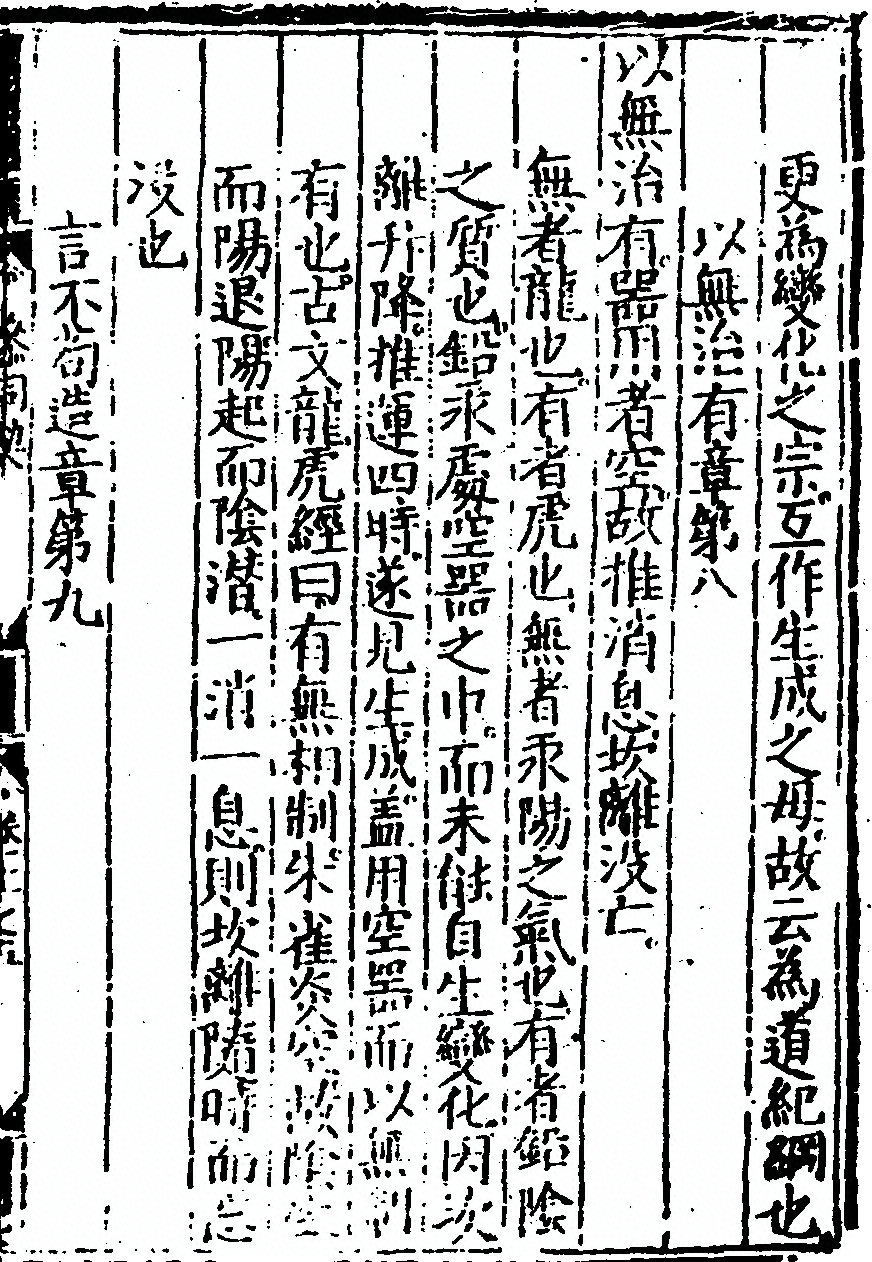 更為變化之宗互作生成之母故云為道紀綱也
以無治有章第八
以無治有器用者空故推消息坎離没亡
無者龍也有者虎也無者汞陽之氣也有者鉛陰
之質也鉛汞處空器之中而未能自生變化因坎
離升降推運四時遂見生成盖用空器而以無制
有也古文龍虎經曰有無相制朱雀炎空故陰生
而陽退陽起而陰潛一消一息則坎離隨時而
没也
言不苟造章第九
參同契